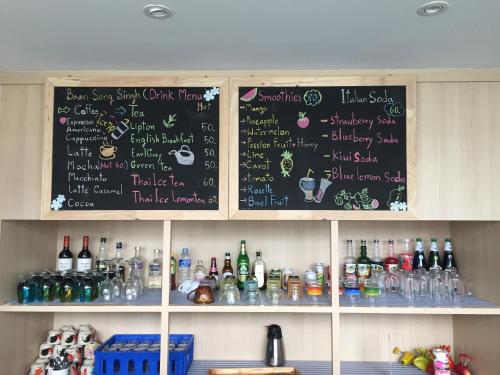 Baan Song Singh (Drink Menu)
Hot
Coffee
Espresso
Americano
Cappuccino
Latte
Mocha (Hot 50.)
Macchiato
Latte Caramel
Cocoa
Tea
Lipton 50.
English Breakfast 50.
Earl Grey 50.
Green Tea 50.
Thai Ice Tea 60.
Thai Ice Tea Lemon 60.
Smoothies 50
Mango
Pineapple
Watermelon
Passion Fruit + Honey
Lime
Carot
Tomato
Roselle
Bael Fruit
Italian Soda
60.
- Strawberry Soda
- Blueberry Soda
- Kiwi Soda
- Blue lemon Soda